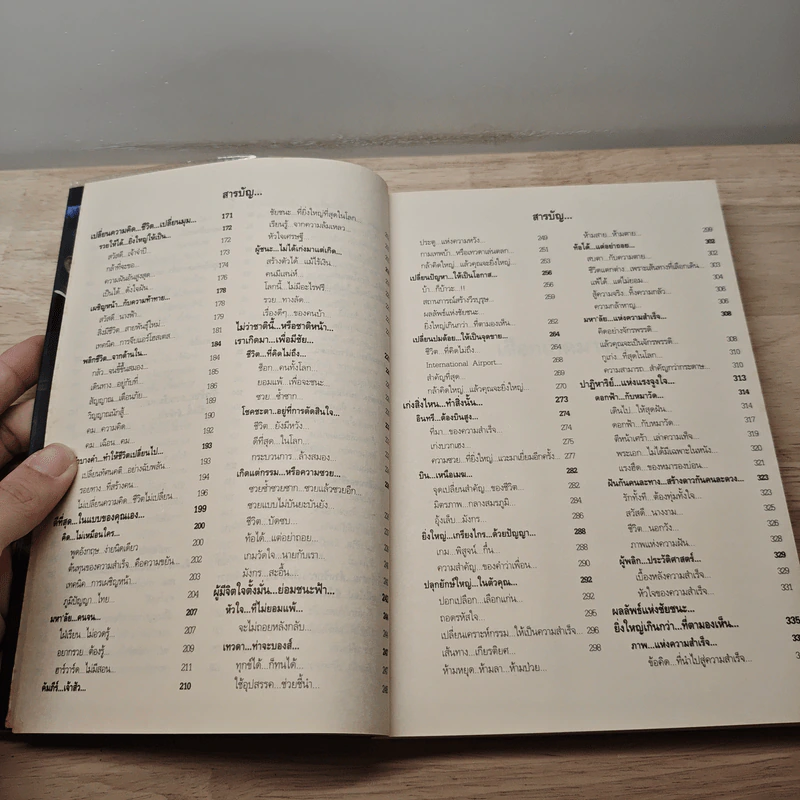 สารบัญ...
เปลี่ยนความคิด...ชีวิต...เปลี่ยนมุม... 171
รวยให้ได้...ยิ่งใหญ่ให้เป็น... 172
สวัสดี...เจ้าจำปี 172
กล้าที่จะขอ... 174
ความฝันอันสูงสุด 176
เป็นได้...ดั่งใจฝัน 178
เผชิญหน้า...กับความท้าทาย... 178
สวัสดี...นางฟ้า... 178
สิ่งมีชีวิต...สายพันธุ์ใหม่... 179
เทคนิค...การจีบแอร์โฮสเตส 181
พลิกชีวิต...จากด้านใน... 184
กล้า...จนขี้ขึ้นสมอง... 184
เดินทาง...อยู่กับที่ 185
สัญญาณ...เตือนภัย... 186
วิญญาณนักสู้... 187
คิด...ความคิด 190
คม...เฉือน...คม... 192
193
เปลี่ยนทัศนคติ...อย่างฉับพลัน 193
รอยทาง...ที่สร้างคน... 194
ไม่เปลี่ยนความคิด...ชีวิตไม่เปลี่ยน... 196
ดีที่สุด...ในแบบของคุณเอง... 199
คิด...ไม่เหมือนใคร... 200
พูดอังกฤษ...ง่ายนิดเดียว 200
ต้นทุนของความสำเร็จ...คือความขยัน... 202
เทคนิค...การเผชิญหน้า... 203
ภูมิปัญญา...ไทย... 204
มหา'ลัย...คนจน... 207
ไม่เรียน...ไม่อวดรู้... 207
อยากรวย...ต้องรู้... 209
ฮาร์วาร์ด...ไม่มีสอน... 211
คัมภีร์...เจ้าสัว... 210
ชัยชนะ...ที่ยิ่งใหญ่ที่สุดในโลก...
เรียนรู้...จากความล้มเหลว
หัวใจเศรษฐี
ผู้ชนะ...ไม่ได้เก่งมาแต่เกิด...
สร้างตัวได้...แม้ไร้เงิน
คนมีเสน่ห์...
โลกนี้...ไม่มีอะไรฟรี
รวย...ทางลัด...
เรื่องดีๆ...ของคนบ้า
ไม่ว่าชาตินี้...หรือชาติหน้า...
เราเกิดมา...เพื่อมีชัย...
ชีวิต...ที่คิดไม่ถึง...
ช็อก...คนทั้งโลก
ยอมแพ้...เพื่อจะชนะ...
ซวย...ซ้ำซาก...
โชคชะตา...อยู่ที่การตัดสินใจ...
ชีวิต...ยังมีหวัง...
ดีที่สุด...ในโลก...
กระบวนการ...ล้างสมอง...
เกิดแต่กรรม...หรือความซวย...
ซวยซ้ำซวยซาก...ซวยแล้วซวยอีก...
ซวยแบบไม่บันยะบันยัง...
ชีวิต...บัดซบ...
ท้อได้...แต่อย่าถอย...
เกมวัดใจ...นายกับเรา...
มังกร...สะอื้น...
ผู้มีจิตใจตั้งมั่น...ย่อมชนะฟ้า...
หัวใจ...ที่ไม่ยอมแพ้...
จะไม่ถอยหลังกลับ...
เทวดา...ท่าจะบองส์...
ทุกข์ได้...ก็ทนได้...
ใช้อุปสรรค...ช่วยชี้นำ...
สารบัญ...
ประตู...แห่งความหวัง... 249
กามเทพบ้า...หรือเทวดาเล่นตลก... 251
กล้าคิดใหญ่...แล้วคุณจะยิ่งใหญ่... 253
เปลี่ยนปัญหา...ให้เป็นโอกาส... 256
บ้า...ก็บ้าวะ...!! 256
สถานการณ์สร้างวีรบุรุษ... 259
ผลลัพธ์แห่งชัยชนะ... 260
ยิ่งใหญ่เกินกว่า...ที่ตามองเห็น 262
เปลี่ยนปมด้อย...ให้เป็นจุดขาย... 264
ชีวิต...ที่คิดไม่ถึง... 264
International...Airport... 268
สำคัญที่สุด... 269
กล้าคิดใหญ่...แล้วคุณจะยิ่งใหญ่... 270
เก่งสิ่งไหน...ทำสิ่งนั้น... 273
อินทรี...ต้องบินสูง... 274
ที่มา...ของความสำเร็จ... 274
เก่งบวกเฮง... 275
ความซวย...ที่ยิ่งใหญ่...แวะมาเยี่ยมอีกครั้ง... 277
บิน...เหนือเมฆ... 282
จุดเปลี่ยนสำคัญ...ของชีวิต... 282
มิตรภาพ...กลางสมรภูมิ... 284
อุ้งเล็บ...มังกร... 286
ยิ่งใหญ่...เกรียงไกร...ด้วยปัญญา... 288
เกม...พิสูจน์...กึ๋น... 288
ความสำคัญ...ของคำว่าเพื่อน... 290
ปลุกยักษ์ใหญ่...ในตัวคุณ... 292
ปอกเปลือก...เลือกแก่น... 292
ถอดรหัสใจ... 295
เปลี่ยนเคราะห์กรรม...ให้เป็นความสำเร็จ... 296
เส้นทาง...เกียรติยศ... 298
ห้ามหยุด...ห้ามลา...ห้ามป่วย...
ห้ามสาย...ห้ามตาย... 299
ท้อได้...แต่อย่าถอย... 302
สบตา...กับความตาย... 302
ชีวิตแตกต่าง...เพราะเส้นทางที่เลือกเดิน... 303
แพ้ได้...แต่ไม่ยอม... 304
สู้ความจริง...ทิ้งความกลัว... 306
ความกล้าหาญ... 306
มหา'ลัย...แห่งความสำเร็จ... 308
คิดอย่างจักรพรรดิ... 308
แล้วคุณจะเป็นจักรพรรดิ... 308
กูเก่ง...ที่สุดในโลก... 310
ความสามารถ...สำคัญกว่ากระดาษ... 310
ปาฏิหาริย์...แห่งแรงจูงใจ... 313
ดอกฟ้า...กับหมาวัด... 314
เดินไป...ให้สุดฝัน... 314
ดอกฟ้า...กับหมาวัด... 316
ตีหน้าเศร้า...เล่าความเท็จ... 317
พระเอก...ไม่ได้มีเฉพาะในหนัง... 320
แรงฮึด...ของหมารองบ่อน... 321
ฝันกันคนละทาง...สร้างดาวกันคนละดวง... 323
รักทั้งที...ต้องทุ่มทั้งใจ... 323
สวัสดี...นางงาม... 325
ชีวิต...นอกวัง... 326
ภาพแห่งความฝัน... 328
ผู้พลิก...ประวัติศาสตร์... 329
เบื้องหลังความสำเร็จ... 329
หัวใจของความสำเร็จ... 331
ผลลัพธ์แห่งชัยชนะ...
ยิ่งใหญ่เกินกว่า...ที่ตามองเห็น... 335
ภาพ...แห่งความสำเร็จ...
ข้อคิด...ที่นำไปสู่ความสำเร็จ...